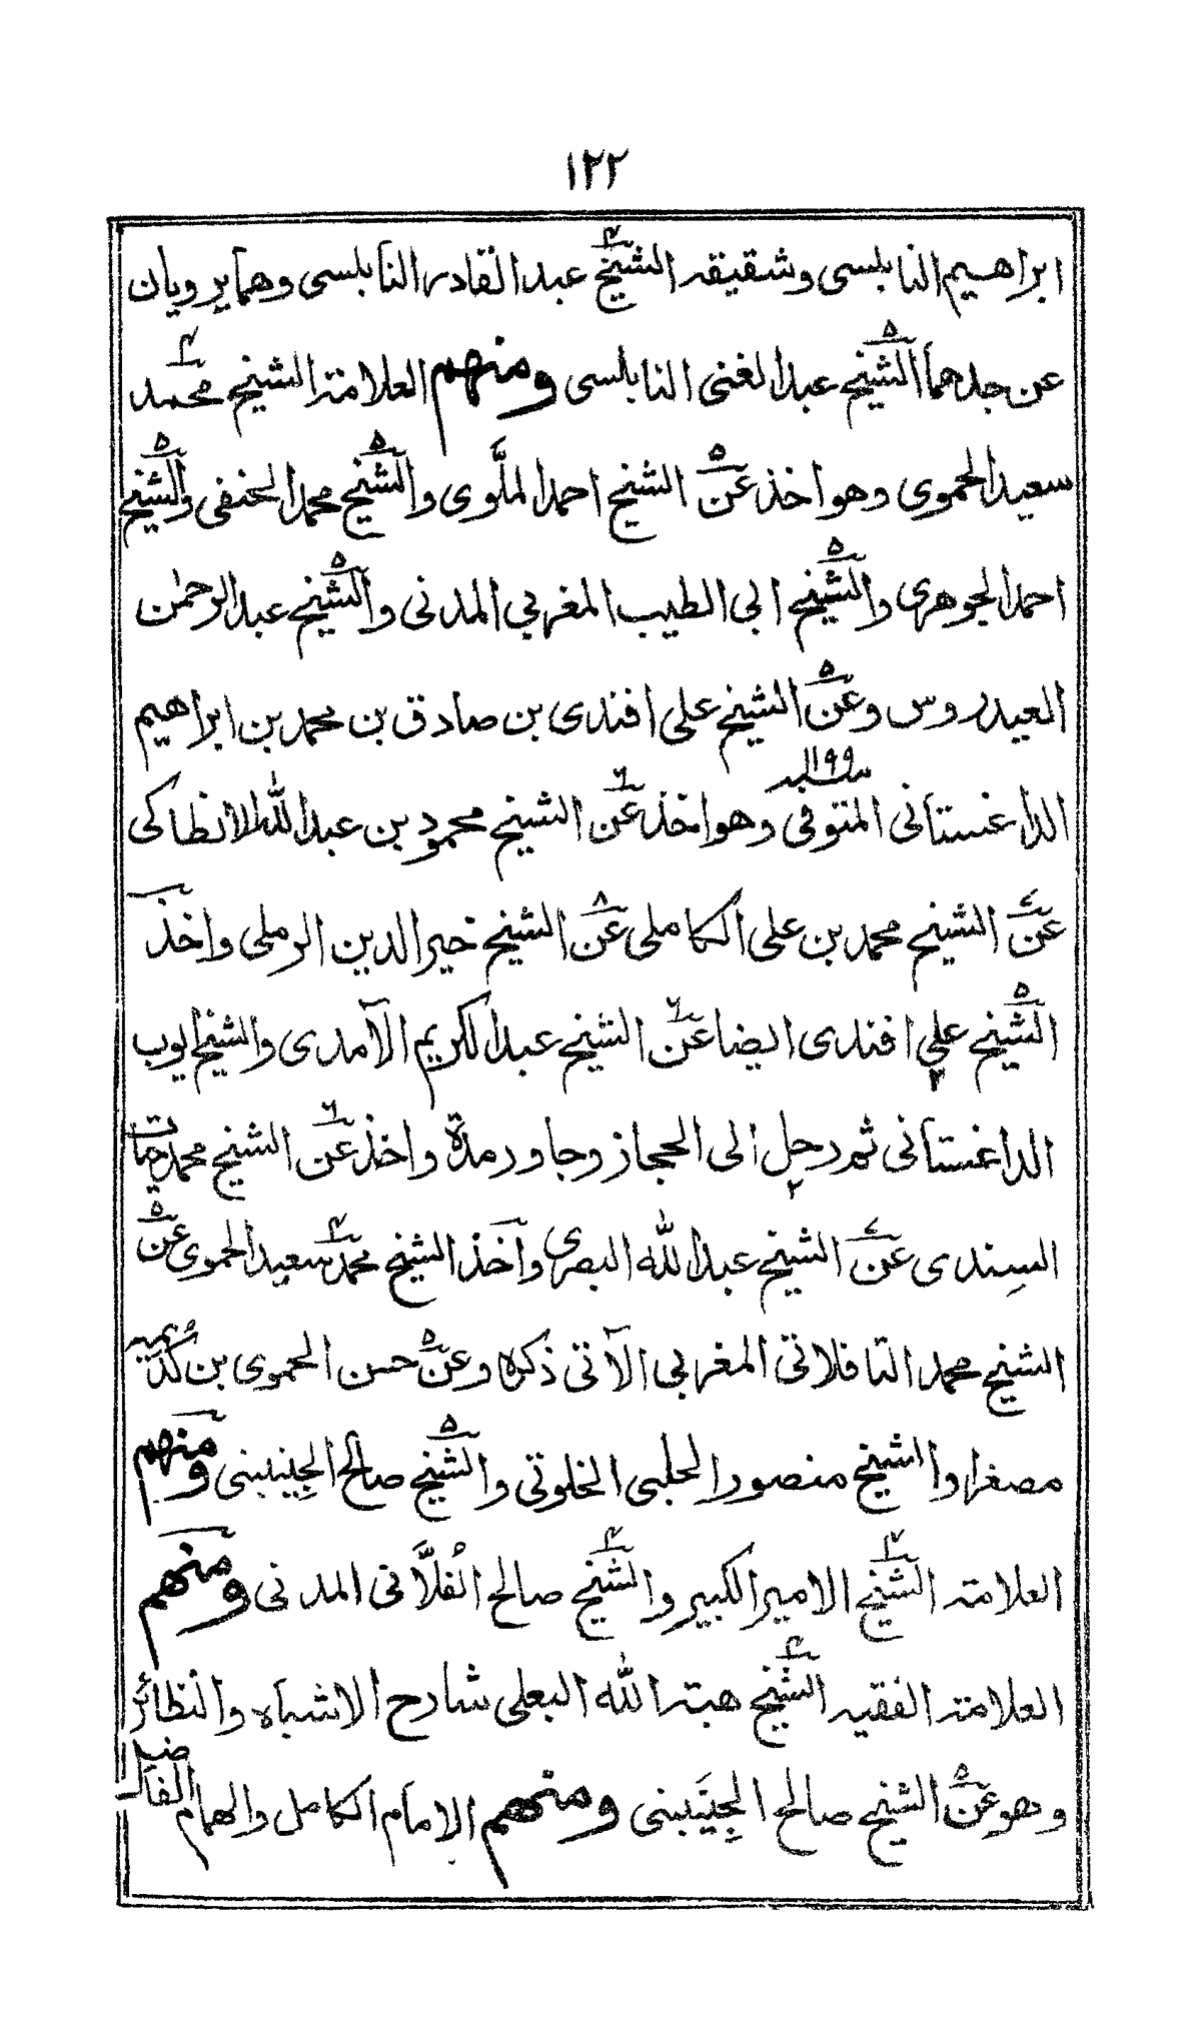 ١٢٢
ابراهيم النابلسى وشقيقه الشيخ عبد القادر النابلسى وهما يرويان
عن جدهما الشيخ عبد الغنى النابلسى ومنهم العلامة الشيخ محمد
سعيد الحموى وهو اخذ عن الشيخ احمد الملَّوى والشيخ محمد الحنفى والشيخ
احمد الجوهرى والشيخ ابى الطيب المغربي المدنى والشيخ عبد الرحمن
العيدروس وعن الشيخ على افندى بن صادق بن محمد بن ابراهيم
الداغستانى المتوفى سنة ١١٩٩ وهو اخذ عن الشيخ محمود بن عبد الله الانطاكى
عن الشيخ محمد بن على الكاملى عن الشيخ خير الدين الرملى واخذ
الشيخ على افندى ايضا عن الشيخ عبد الكريم الآمدى والشيخ ايوب
الداغستانى ثم رحل الى الحجاز وجاور مدة واخذ عن الشيخ محمد حيات
السِندى عن الشيخ عبد الله البصرى وآخذ الشيخ محمد سعيد الحموى عن
الشيخ محمد التافلاتى المغربى الآتى ذكره وعن حسن الحموى بن كُدَيمير
مصغرا والشيخ منصور الحلبى الخلوتى والشيخ صالح الجِنِينينى ومنهم
العلامة الشيخ الامير الكبير والشيخ صالح الفُلَّانى المدنى ومنهم
العلامة الفقيه الشيخ هبة الله البعلى شارح الاشباه والنظائر
وهو عن الشيخ صالح الجِينَينى ومنهم الامام الكامل والهمام الفاضل